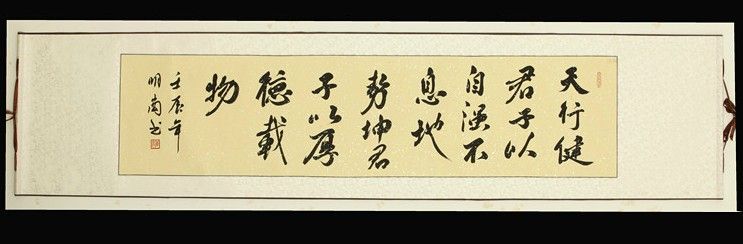 天行健
君子以
自强不
息地
势坤君
子以厚
德载
物
壬辰年
明南书